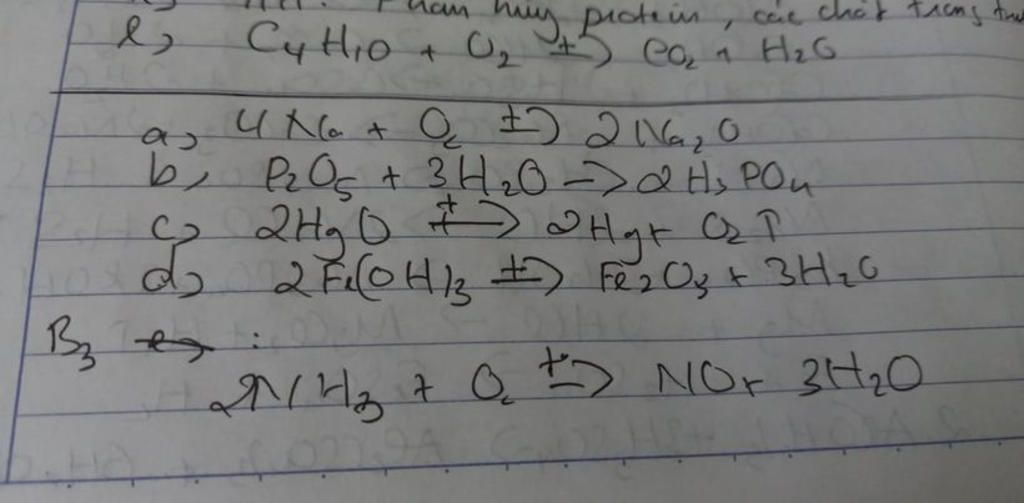 phân hủy protein, các chất trong
e, C4H10 + O2 t→ CO2 + H2O
a, 4Na + O2 t→ 2Na2O
b, P2O5 + 3H2O -> 2H3PO4
c, 2HgO t→ 2Hg + O2↑
d, 2Fe(OH)3 t→ Fe2O3 + 3H2O
B3 :
2NH3 + O2 t→ NO + 3H2O